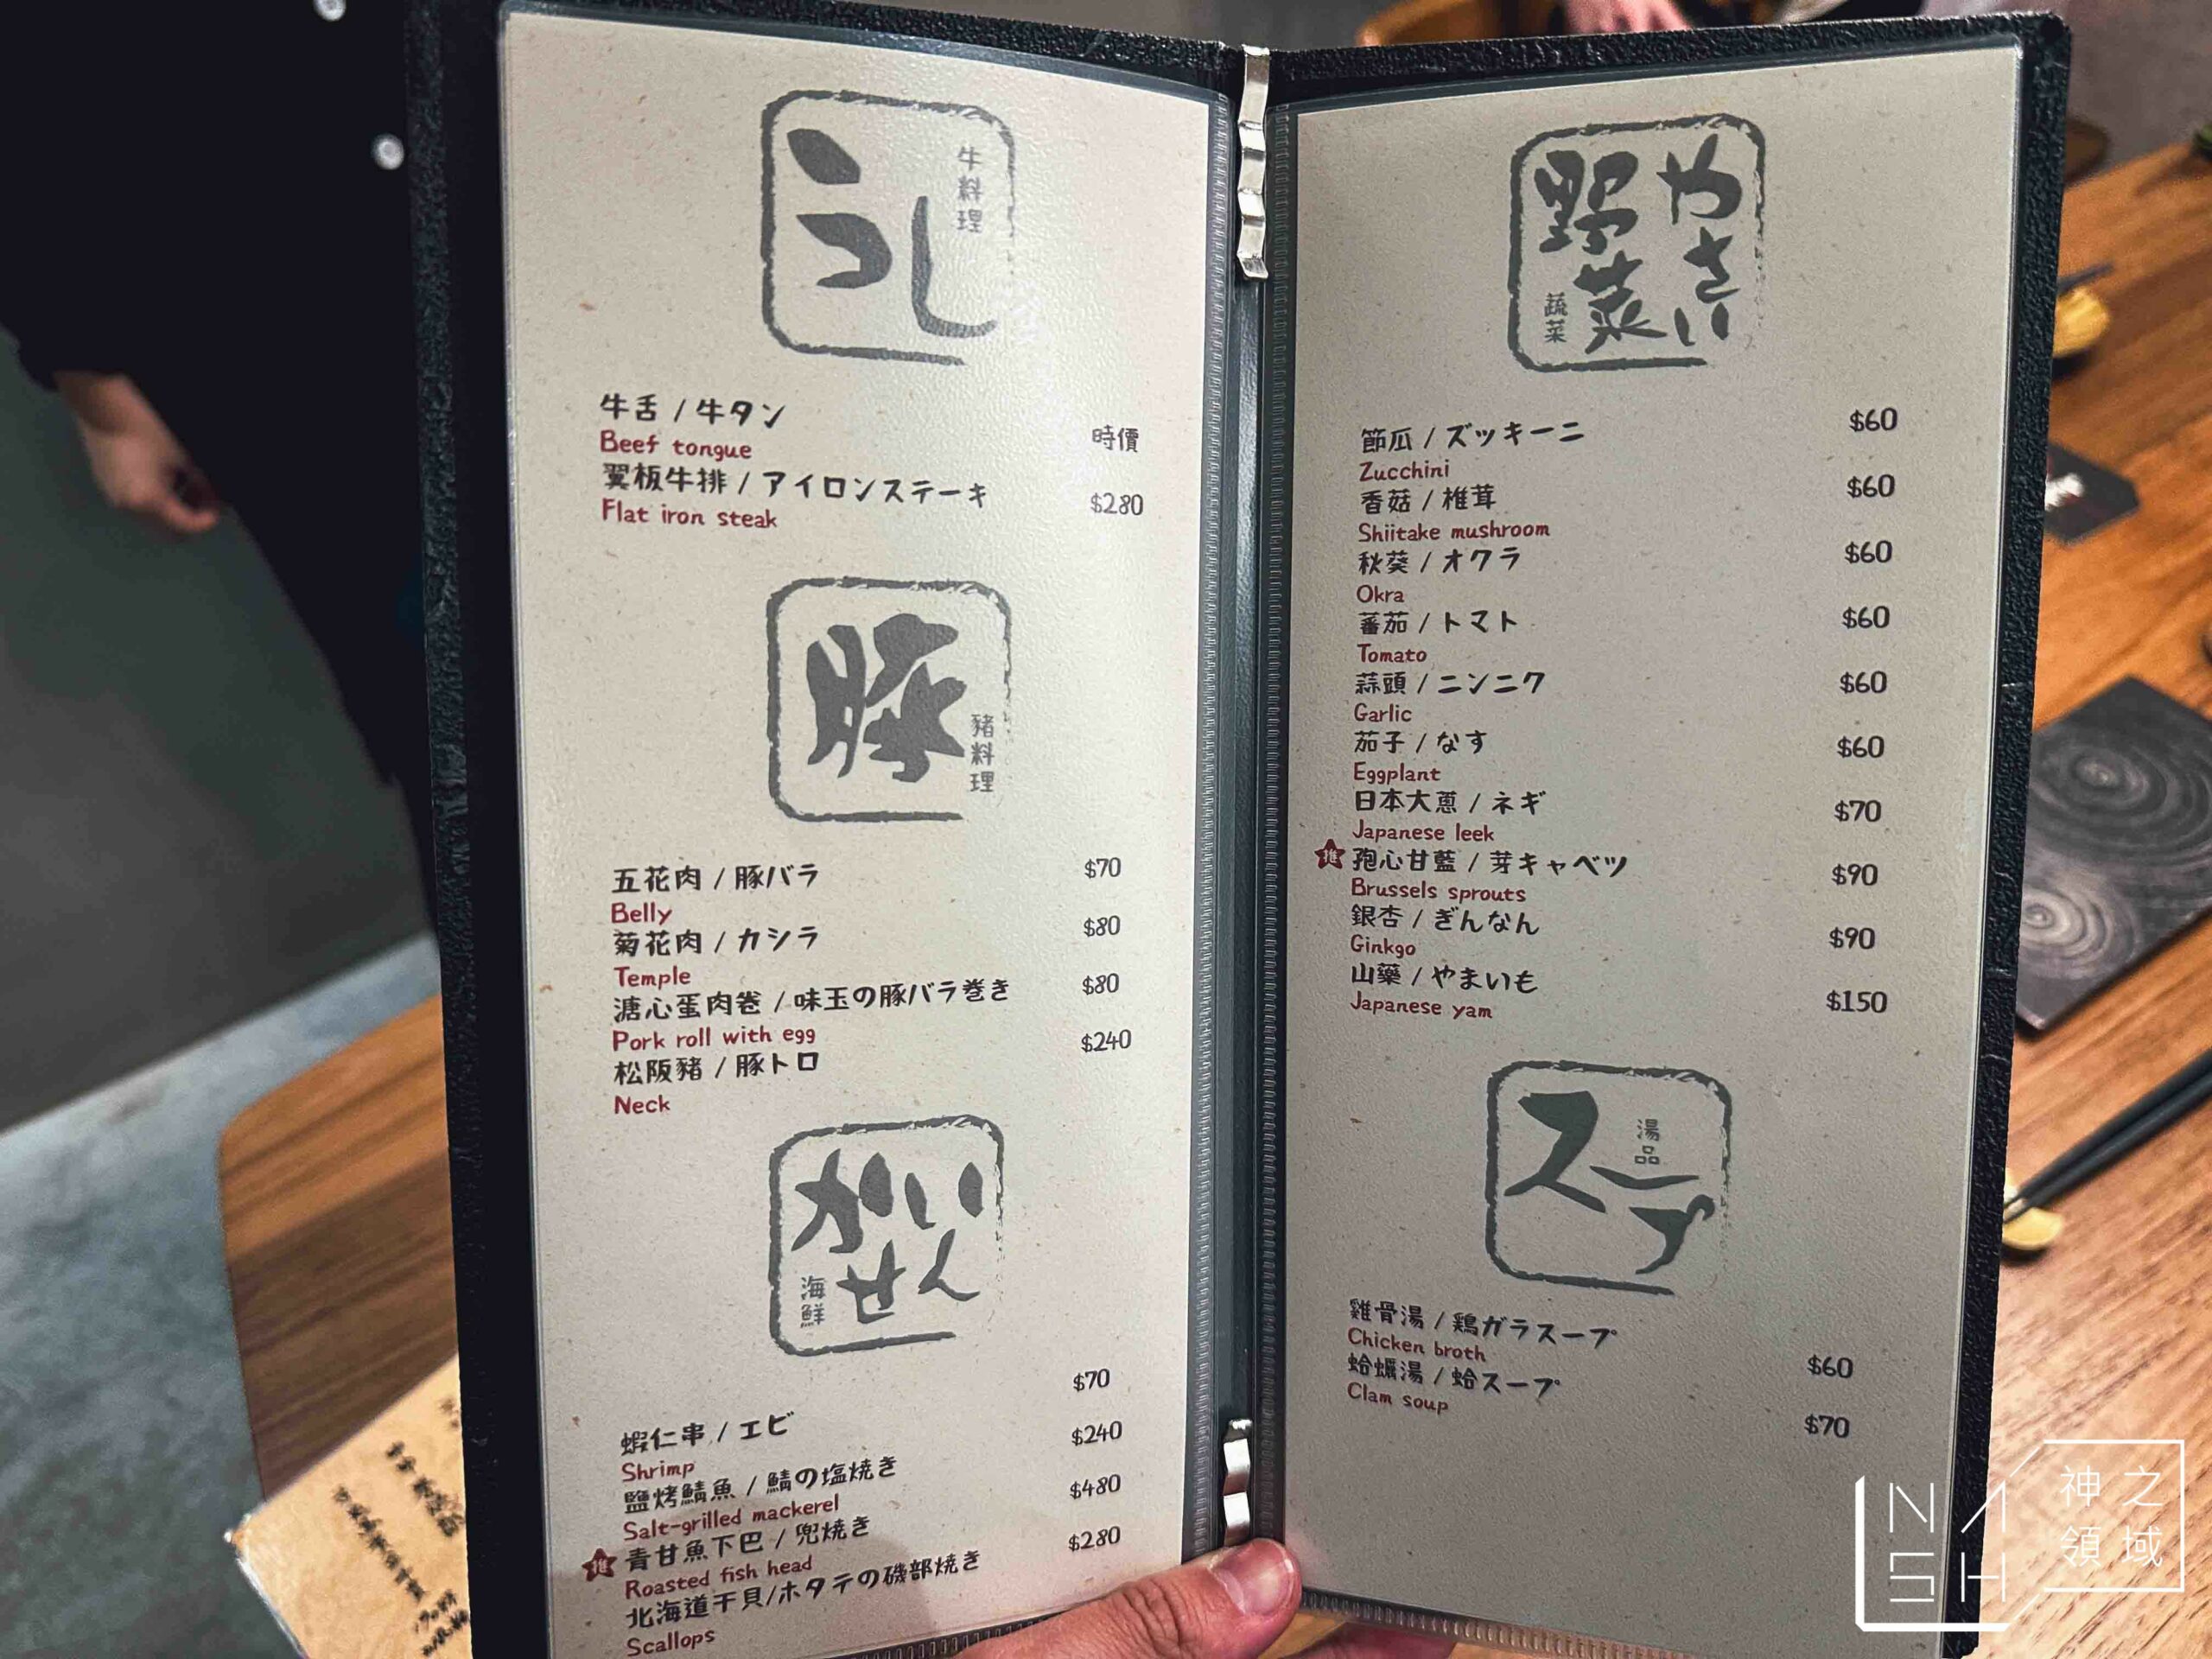 うし
牛料理
牛舌 / 牛タン
時價
Beef tongue
翼板牛排 / アイロンステーキ
$280
Flat iron steak
豚
豬料理
五花肉 / 豚バラ
$70
Belly
菊花肉 / カシラ
$80
Temple
溏心蛋肉卷 / 味玉の豚バラ巻き
$80
Pork roll with egg
松阪豬 / 豚トロ
$240
Neck
かいせん
海鮮
蝦仁串 / エビ
$70
Shrimp
鹽烤鯖魚 / 鯖の塩焼き
$240
Salt-grilled mackerel
推 青甘魚下巴 / 兜焼き
$480
Roasted fish head
北海道干貝/ホタテの磯部焼き
$280
Scallops
やさい
野菜
蔬菜
節瓜 / ズッキーニ
$60
Zucchini
香菇 / 椎茸
$60
Shiitake mushroom
秋葵 / オクラ
$60
Okra
蕃茄 / トマト
$60
Tomato
蒜頭 / ニンニク
$60
Garlic
茄子 / なす
$60
Eggplant
日本大蔥 / ネギ
$70
Japanese leek
推 孢心甘藍 / 芽キャベツ
$90
Brussels sprouts
銀杏 / ぎんなん
$90
Ginkgo
山藥 / やまいも
$150
Japanese yam
スープ
湯品
雞骨湯 / 鶏ガラスープ
$60
Chicken broth
蛤蠣湯 / 蛤スープ
$70
Clam soup
NASH
神之領域